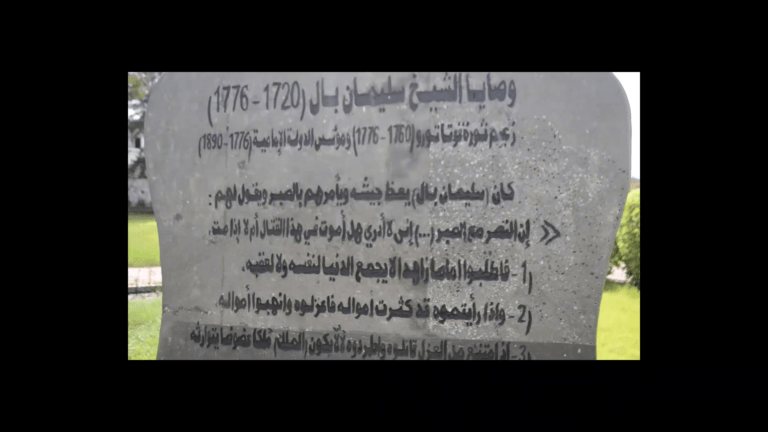 وصايا الشيخ سليمان بال (1720 - 1776)
زعيم ثورة فوتا تورو (1760 - 1776) ومؤسس الدولة الإمامية (1776 - 1890)
كان (سليمان بال) يعظ جيشه ويأمرهم بالصبر ويقول لهم :
« إن النصر مع الصبر (...) إني لا أدري هل أموت في هذا القتال أم لا إذا مت.
1 - فاطلبوا إماما زاهدا لا يجمع الدنيا لنفسه ولا لعقبه.
2 - وإذا رأيتموه قد كثرت أمواله فاعزلوه وانهبوا أمواله.
3 - إذا امتنع من العزل قاتلوه واطردوه لألا يكون (الملك) ملكا عضوضا يتوارثه